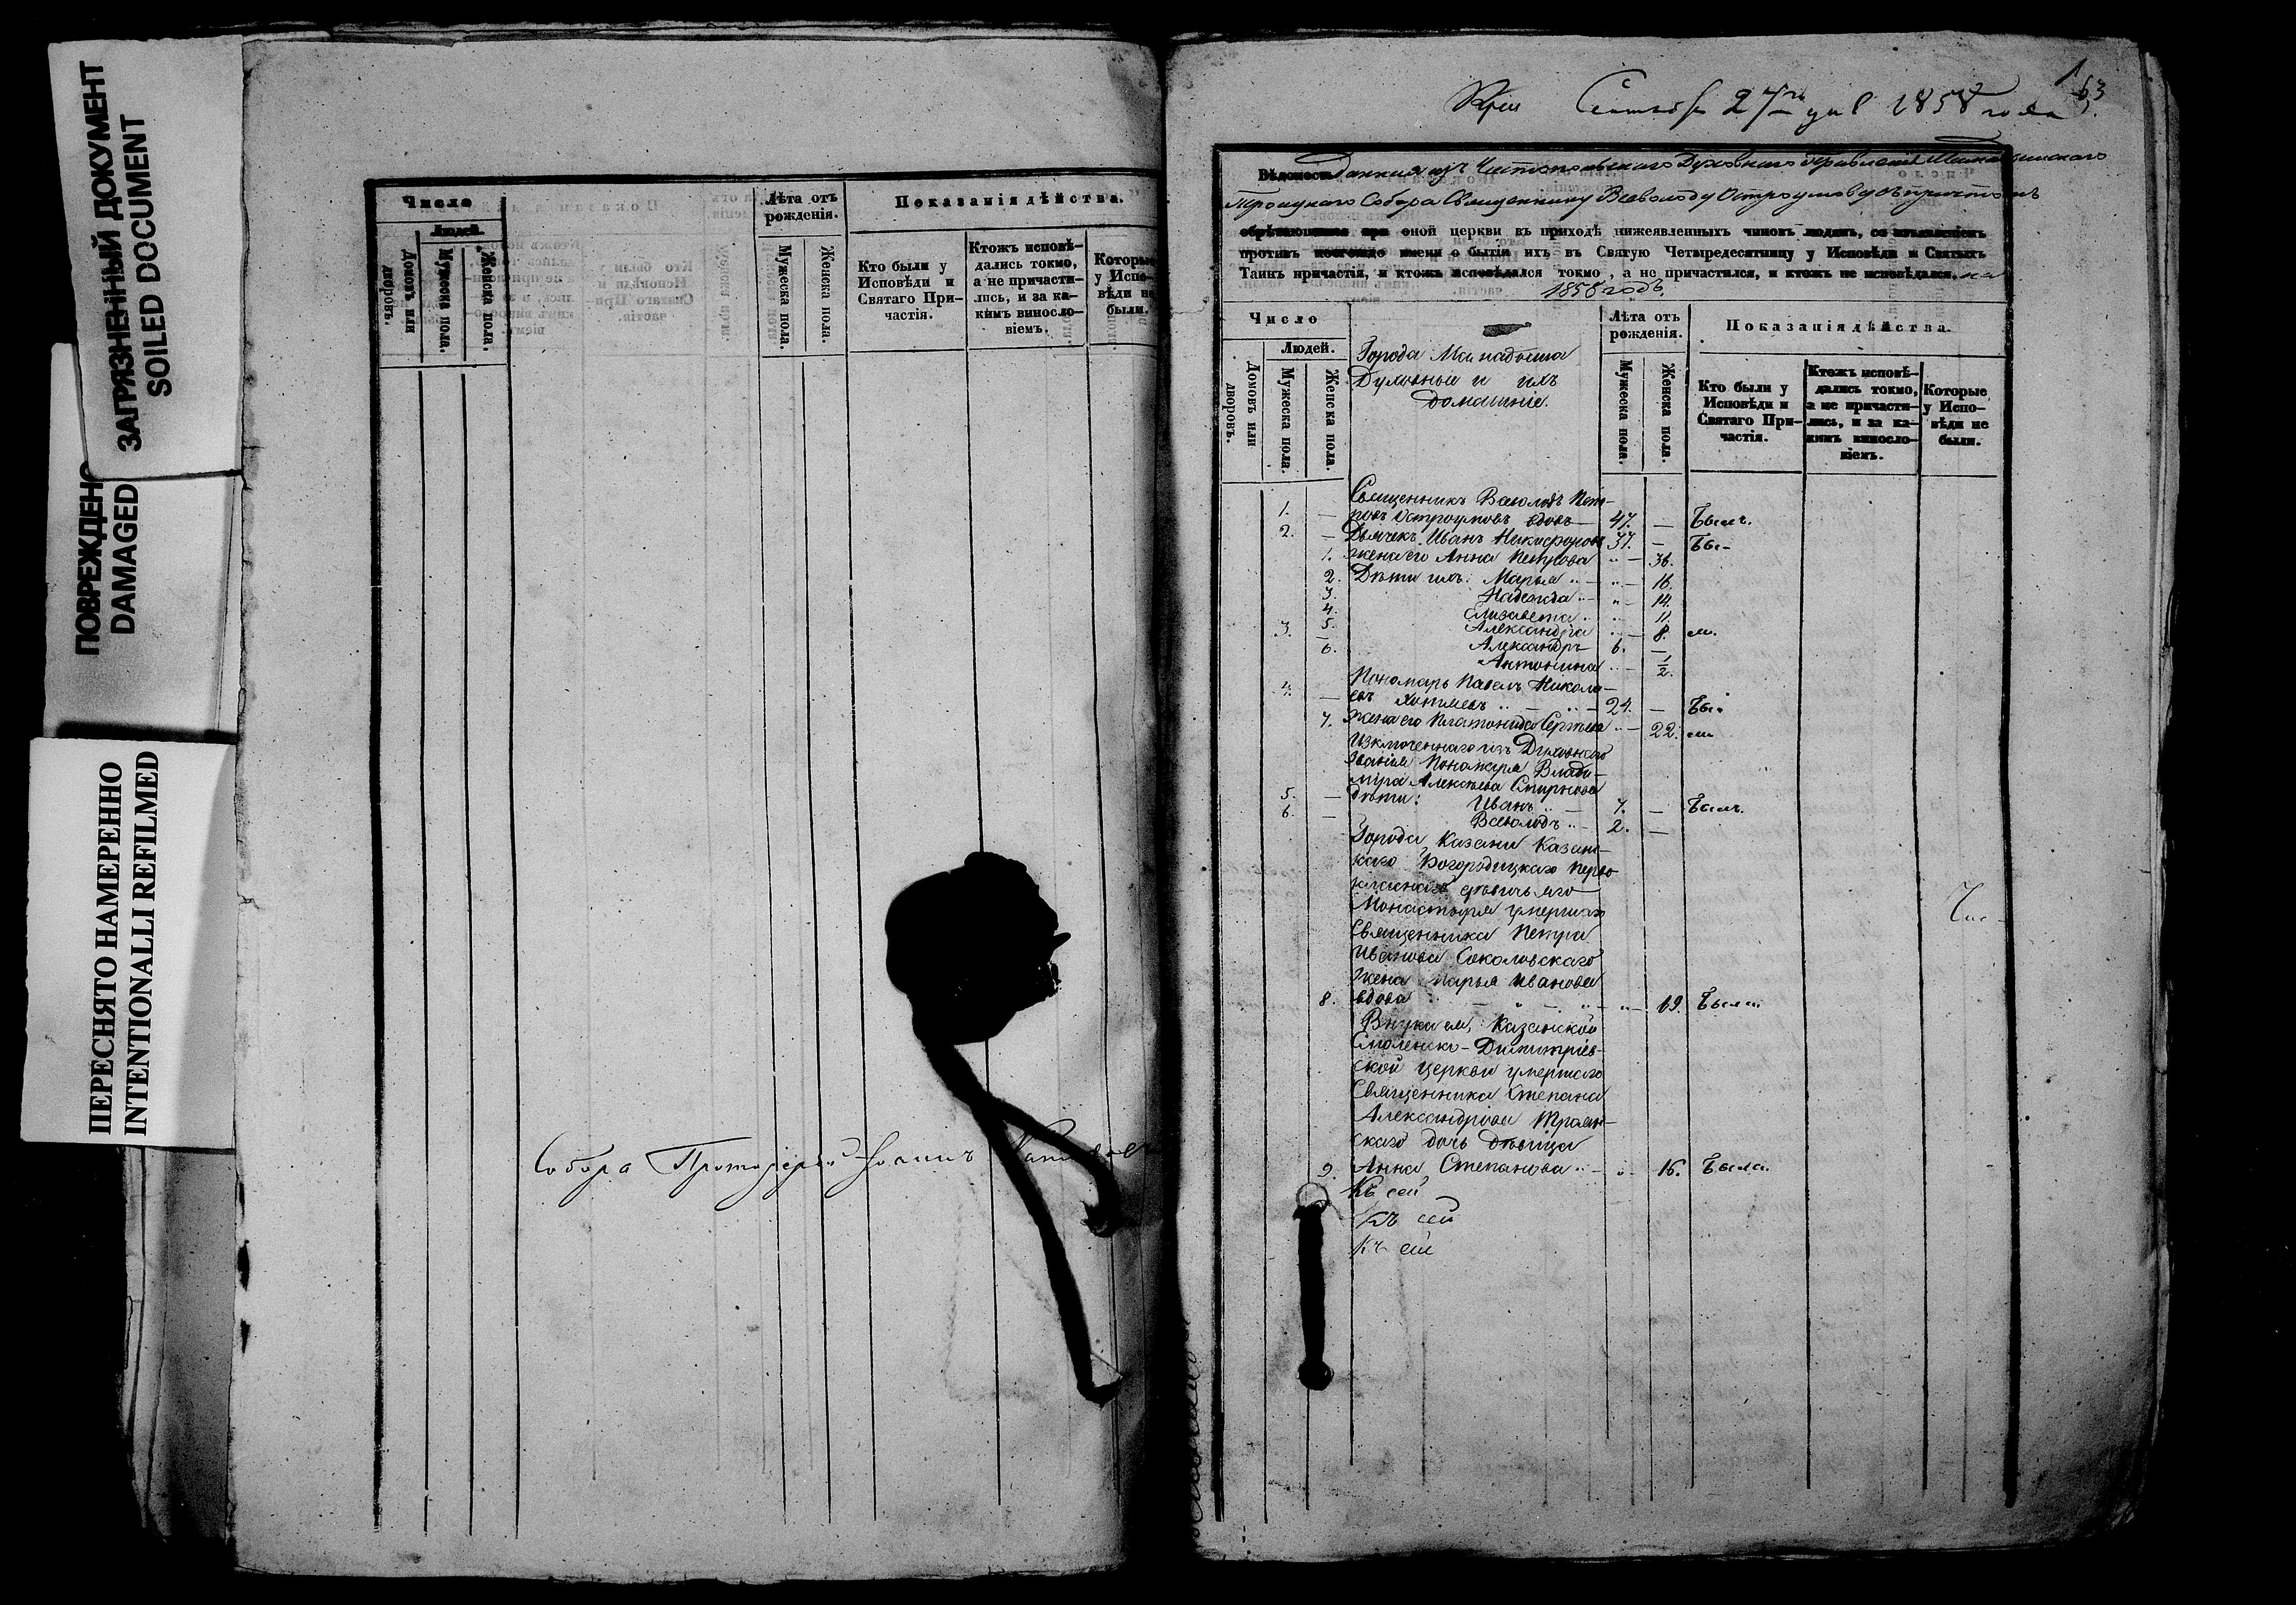 ЗАГРЯЗНЕННЫЙ ДОКУМЕНТ
SOILED DOCUMENT
ПОВРЕЖДЕН
DAMAGED
ПЕРЕСНЯТО НАМЕРЕННО
INTENTIONALLI REFILMED
Число
Людей.
Домовъ или дворовъ.
Мужеска пола.
Женска пола.
Лѣта отъ рожденія.
Мужеска пола.
Женска пола.
Показанія дѣйства.
Кто были у Исповѣди и Святаго При-
частія.
Ктожъ исповѣ-
дались токмо,
а не причасти-
лись, и за ка-
кимъ виносло-
віемъ.
Которые
у Испо-
вѣди не
были.
Собора Протоіерей Іоаннъ
Сентября 27 дня 1858 года
163
Вѣдомость данная изъ Чистопольскаго Духовнаго Правленія Мамадышскаго
Троицкаго Собора Священнику Всеволоду Остроумову съ причтомъ
обрѣтающимся при оной церкви въ приходѣ нижеявленныхъ чиновъ людямъ, со изъявленіемъ
противъ коегождо имени о бытіи ихъ въ Святую Четыредесятницу у Исповѣди и Святыхъ
Таинъ причастія, и ктожъ исповѣдался токмо, а не причастился, и ктожъ не исповѣдался. на
1858 годъ.
Число
Людей.
Домовъ или дворовъ.
Мужеска пола.
Женска пола.
Города Мамадыша
Духовные и ихъ
домашніе.
Лѣта отъ рожденія.
Мужеска пола.
Женска пола.
Показанія дѣйства.
Кто были у
Исповѣди и
Святаго При-
частія.
Ктожъ исповѣ-
дались токмо,
а не причасти-
лись, и за ка-
кимъ виносло-
віемъ.
Которые
у Испо-
вѣди не
были.
Священникъ Всеволодъ Пет-
1. — ровъ Остроумовъ вдовъ — 47. — Былъ.
2. — Дьячекъ Иванъ Никифоровъ 37. — Бы-
1. жена его Анна Петрова " — 36.
2. Дѣти ихъ: Марья " — 16.
3. Надежда " — 14.
4. Елизавета " 11.
5. Александра " — 8. ли.
3. — Александръ 6. —
6. Антонина " — 1/2.
Пономарь Павелъ Никола-
4. — евъ 24. — Бы-
7. жена его Платонида Сергѣева " — 22. ли
Изключеннаго изъ Духовнаго
званія Пономаря Влади-
міра Алексѣева Смирнова
5. — дѣти: Иванъ — 7. — Былъ.
6. — Всеволодъ — 2. —
Города Казани Казан-
скаго Богородицкаго перво
класнаго дѣвичьяго
Монастыря умершаго
Священника Петра
Иванова Соколовскаго
жена Марья Иванова
8. вдова " — 69. Была.
Внука ея, Казанской
Смоленско-Димитріев-
ской церкви умершаго
Священника Степана
Александрова Троян-
скаго дочь дѣвица
9. Анна Степанова — " 16. Была.
Къ сей
Къ сей
Къ сей